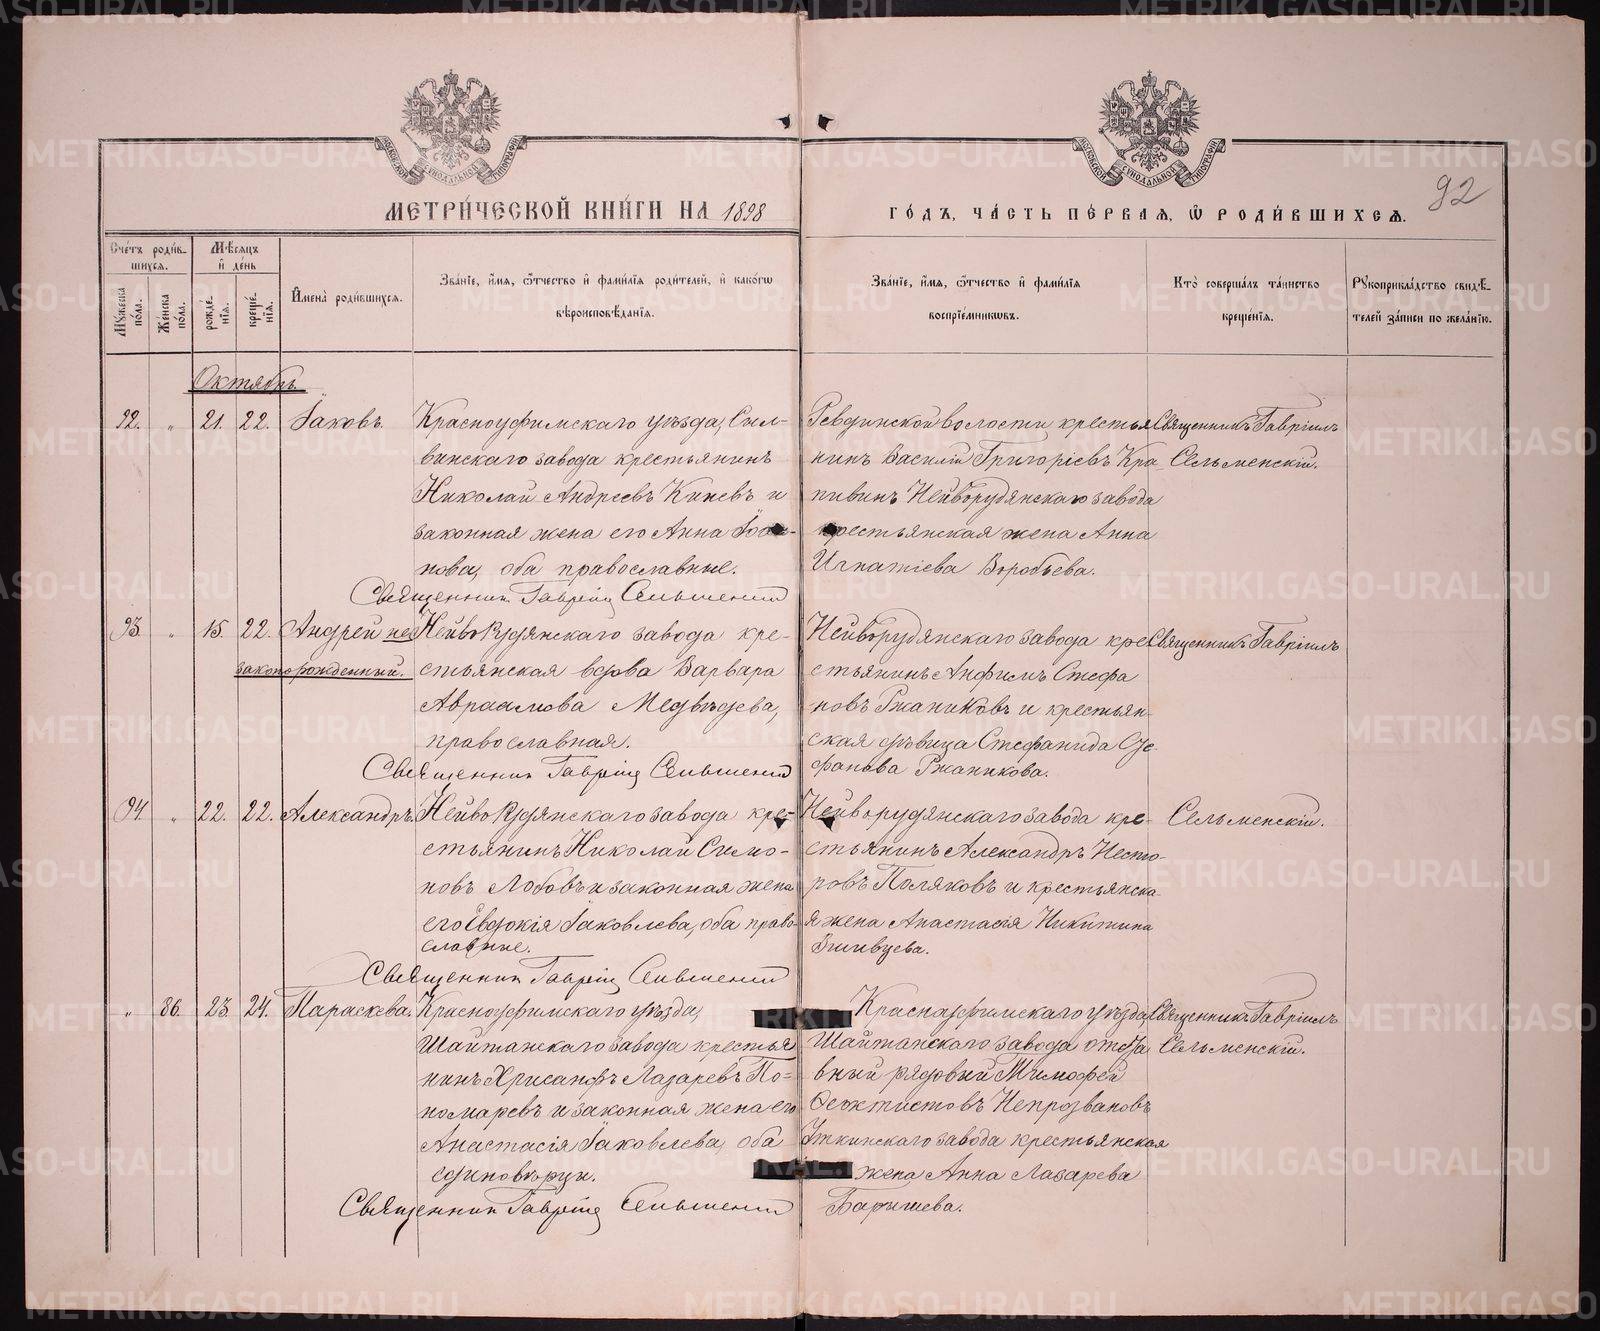 МЕТРИ́ЧЕСКОЙ КНИ́ГИ НА 1898
ГО́ДЪ, ЧА́СТЬ ПЕ́РВАЯ, Ѽ РОДИ́ВШИХСѦ.
92
МОСКОВСКОЙ СѴНОДАЛЬНОЙ ТИПОГРАФІИ
МОСКОВСКОЙ СѴНОДАЛЬНОЙ ТИПОГРАФІИ
Сче́тъ роди́в-
шихсѧ.
Мꙋ́жеска по́ла.
Же́нска по́ла.
Мѣ́сѧцъ
и҆ де́нь
рожде́-
нїѧ.
креще́-
нїѧ.
И҆мена̀ роди́вшихсѧ.
Зва́нїе, и҆́мѧ, ѻ҆́тчество и҆ фами́лїѧ роди́телей, и҆ како́гѡ
вѣроисповѣ́данїѧ.
Зва́нїе, и҆́мѧ, ѻ҆́тчество и҆ фами́лїѧ
воспрїе́мникѡвъ.
Кто̀ соверша́лъ та́инство
креще́нїѧ.
Рꙋкоприкла́дство свидѣ́-
телей за́писи по жела́нїю.
Октябрь.
92. " 21. 22. Іаковъ.
Красноуфимскаго уѣзда, Сыл-
винскаго завода крестьянинъ
Николай Андреевъ Киневъ и
законная жена его Анна Іоан-
нова, оба православные.
Священникъ Гавріилъ Сельменскій
Ревдинской волости крестья
нинъ Василій Григоріевъ Кра
пивинъ Нейворудянскаго завода
крестьянская жена Анна
Игнатіева Воробьева.
Священникъ Гавріилъ
Сельменскій.
93. " 15. 22. Андрей не
законорожденный.
Нейворудянскаго завода кре-
стьянская вдова Варвара
Авраамова Медвѣдева,
православная.
Священникъ Гавріилъ Сельменскій
Нейворудянскаго завода кре
стьянинъ Анфимъ Стефа
новъ Ржанниковъ и крестьян
ская дѣвица Стефанида Сте
фанова Ржаникова.
Священникъ Гавріилъ
94 " 22. 22. Александръ.
Нейворудянскаго завода кре-
стьянинъ Николай Симо-
новъ Лобовъ и законная жена
его Евдокія Іаковлева, оба право
славные.
Священникъ Гавріилъ Сельменскій
Нейворудянскаго завода кре-
стьянинъ Александръ Несто-
ровъ Поляковъ и крестьянска
я жена Анастасія Никитина
Вшивцева.
Сельменскій.
" 86. 23. 24. Параскева.
Красноуфимскаго уѣзда,
Шайтанскаго завода крестья
нинъ Хрисанфъ Лазаревъ По-
номаревъ и законная жена его
Анастасія Іаковлева, оба
единовѣрцы.
Священникъ Гавріилъ Сельменскій
Красноуфимскаго уѣзда,
Шайтанскаго завода отста
вный рядовый Тимофей
Ѳеоктистовъ Непрозвановъ
Уткинскаго завода крестьянская
жена Анна Лазарева
Барышева.
Священникъ Гавріилъ
Сельменскій.
METRIKI.GASO-URAL.RU